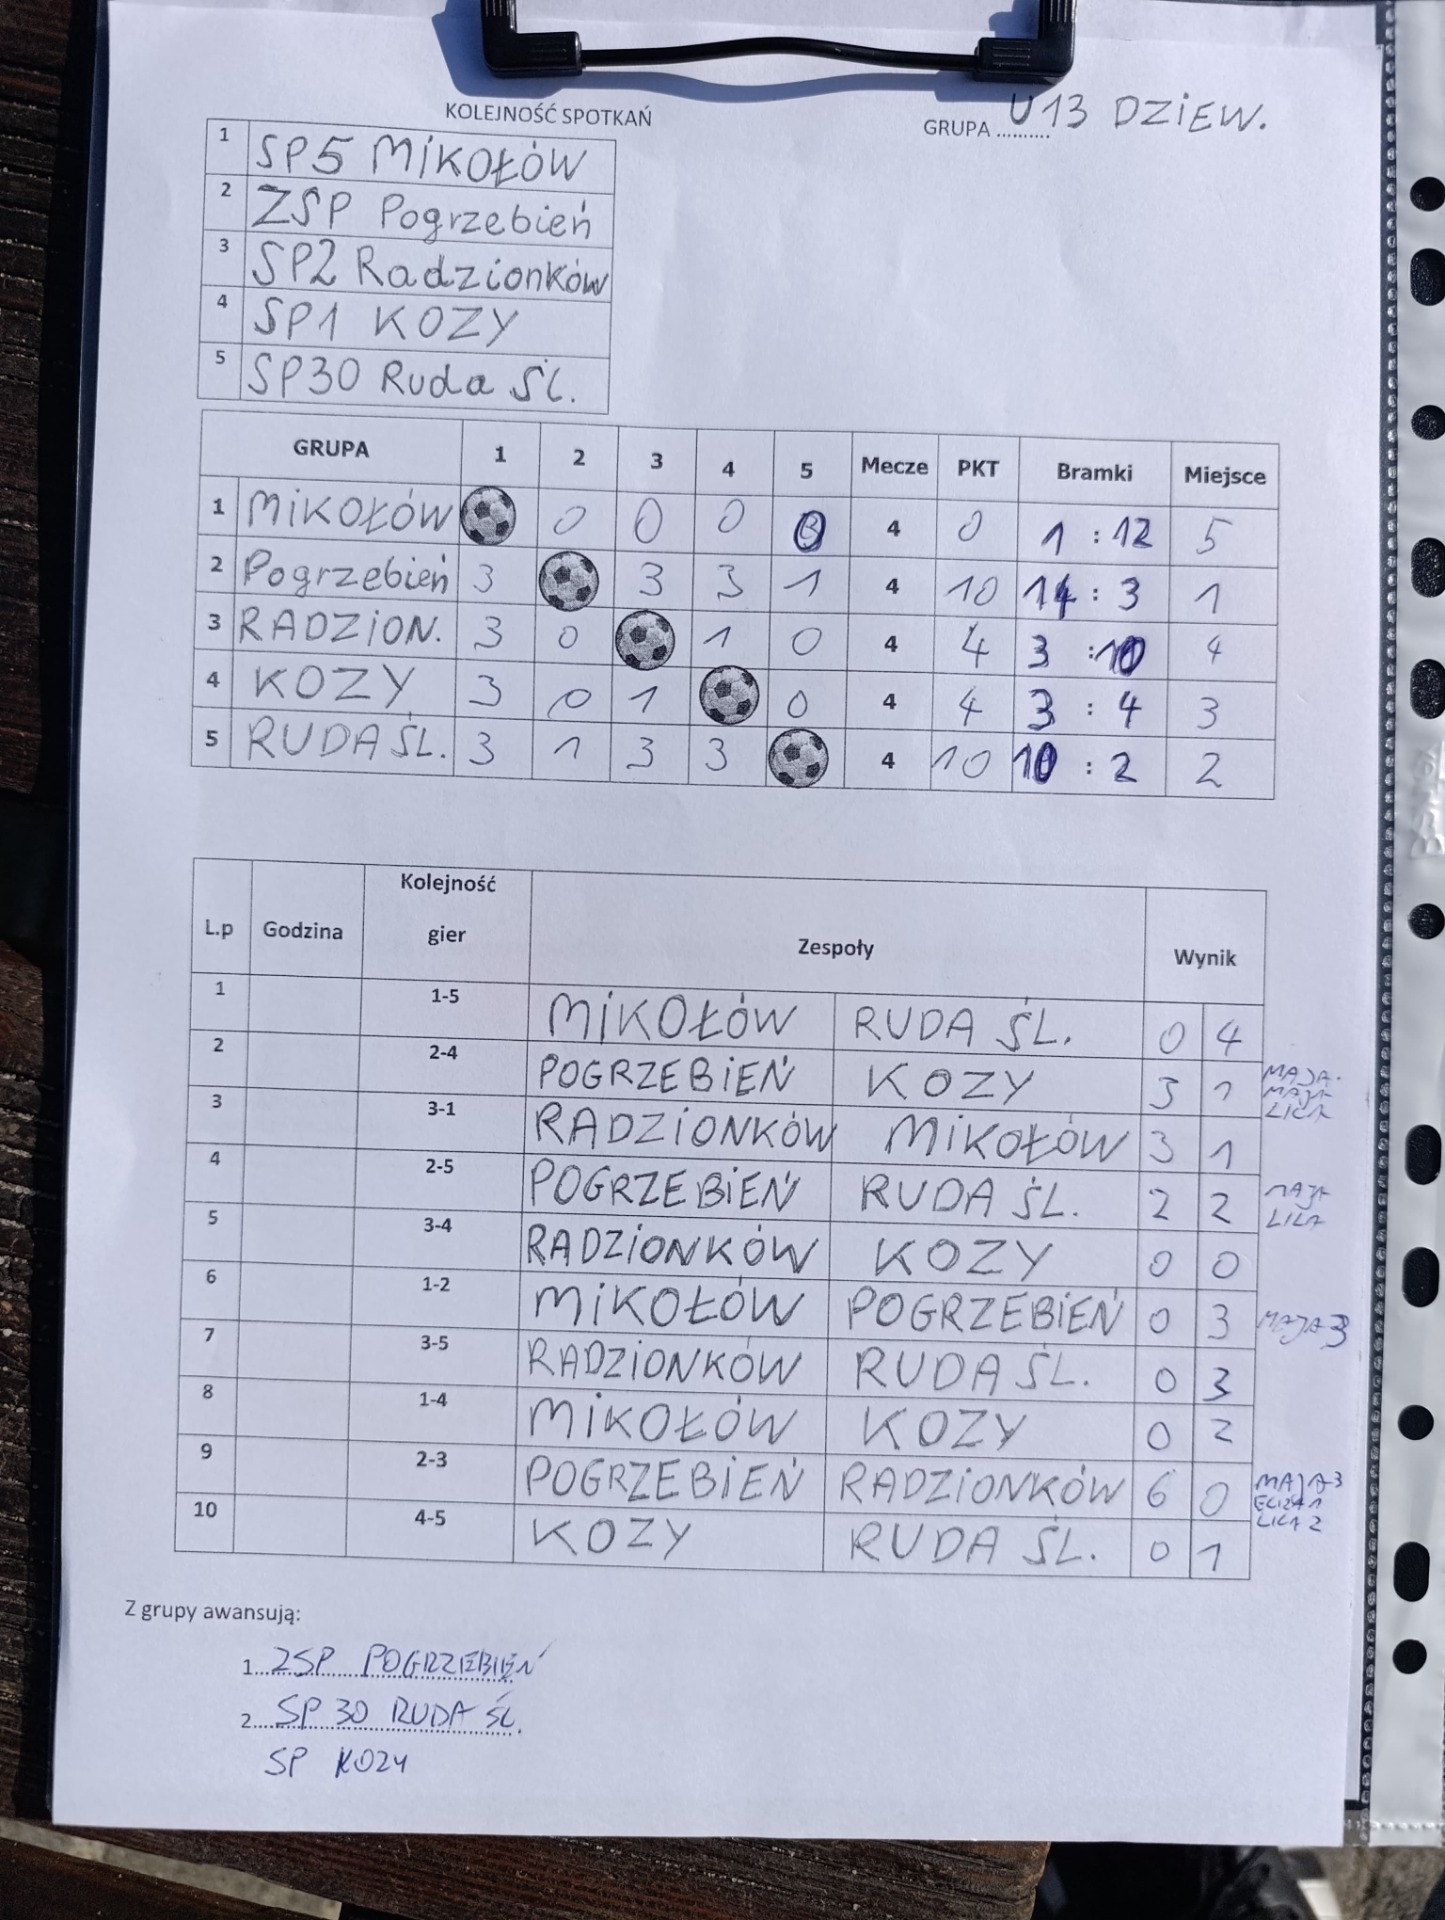 KOLEJNOŚĆ SPOTKAŃ
GRUPA .......... U13 DZIEW.
1 SP5 MiKOŁÓW
2 ZSP Pogrzebień
3 SP2 Radzionków
4 SP1 KOZY
5 SP30 Ruda ŚL.
GRUPA 1 2 3 4 5 Mecze PKT Bramki Miejsce
1 MiKOŁÓW 0 0 0 0 4 0 1 : 12 5
2 Pogrzebień 3 3 3 1 4 10 14 : 3 1
3 RADZION. 3 0 1 0 4 4 3 : 10 4
4 KOZY 3 0 1 0 4 4 3 : 4 3
5 RUDA ŚL. 3 1 3 3 4 10 10 : 2 2
L.p Godzina Kolejność gier Zespoły Wynik
1 1-5 MiKOŁÓW RUDA ŚL. 0 4
2 2-4 POGRZEBiEŃ KOZY 3 1 MAJA MAJA LILA
3 3-1 RADZiONKÓW MiKOŁÓW 3 1
4 2-5 POGRZEBiEŃ RUDA ŚL. 2 2 MAJA LILA
5 3-4 RADZiONKÓW KOZY 0 0
6 1-2 MiKOŁÓW POGRZEBiEŃ 0 3 MAJA 3
7 3-5 RADZiONKÓW RUDA ŚL. 0 3
8 1-4 MiKOŁÓW KOZY 0 2
9 2-3 POGRZEBiEŃ RADZiONKÓW 6 0 MAJA 3 ELIZA 1 LILA 2
10 4-5 KOZY RUDA ŚL. 0 1
Z grupy awansują:
1...ZSP POGRZEBIEŃ
2.... SP 30 RUDA ŚL.
SP KOZY